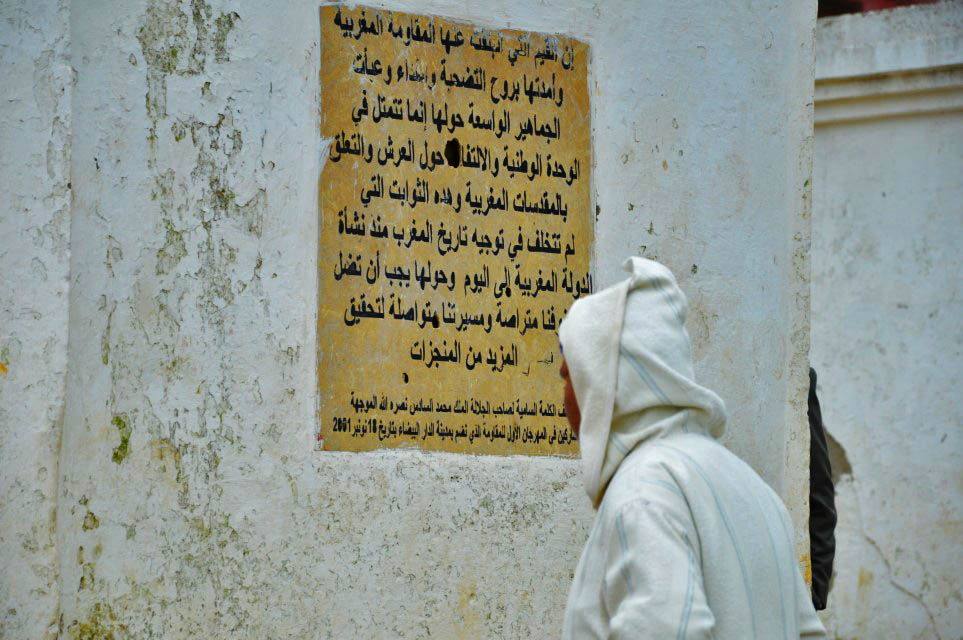 إن القيم التي انبثقت عنها المقاومة المغربية
وأمدتها بروح التضحية والفداء وعبأت
الجماهير الواسعة حولها إنما تتمثل في
الوحدة الوطنية والالتفاف حول العرش والتعلق
بالمقدسات المغربية وهده الثوابت التي
لم تتخلف في توجيه تاريخ المغرب مند نشأة
الدولة المغربية إلى اليوم وحولها يجب أن تضل
متراصة ومسيرتنا متواصلة لتحقيق
المزيد من المنجزات
الكلمة السامية لصاحب الجلالة الملك محمد السادس نصره الله الموجهة
في المهرجان الأول للمقاومة الذي نضم بمدينة الدار البيضاء بتاريخ 16 نونبر 2001